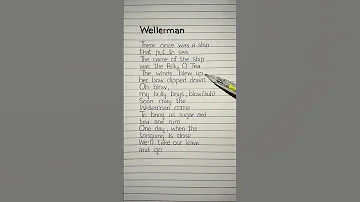 Wellerman
There once was a ship
that put to sea
The name of the ship
was the Billy O' Tea
The winds blew up,
her bow dipped down
Oh blow,
my bully boys, blow(huh)
Soon may the
Wellerman come
To bring us sugar and
tea and rum
One day, when the
tonguing is done
We'll take our leave
and go